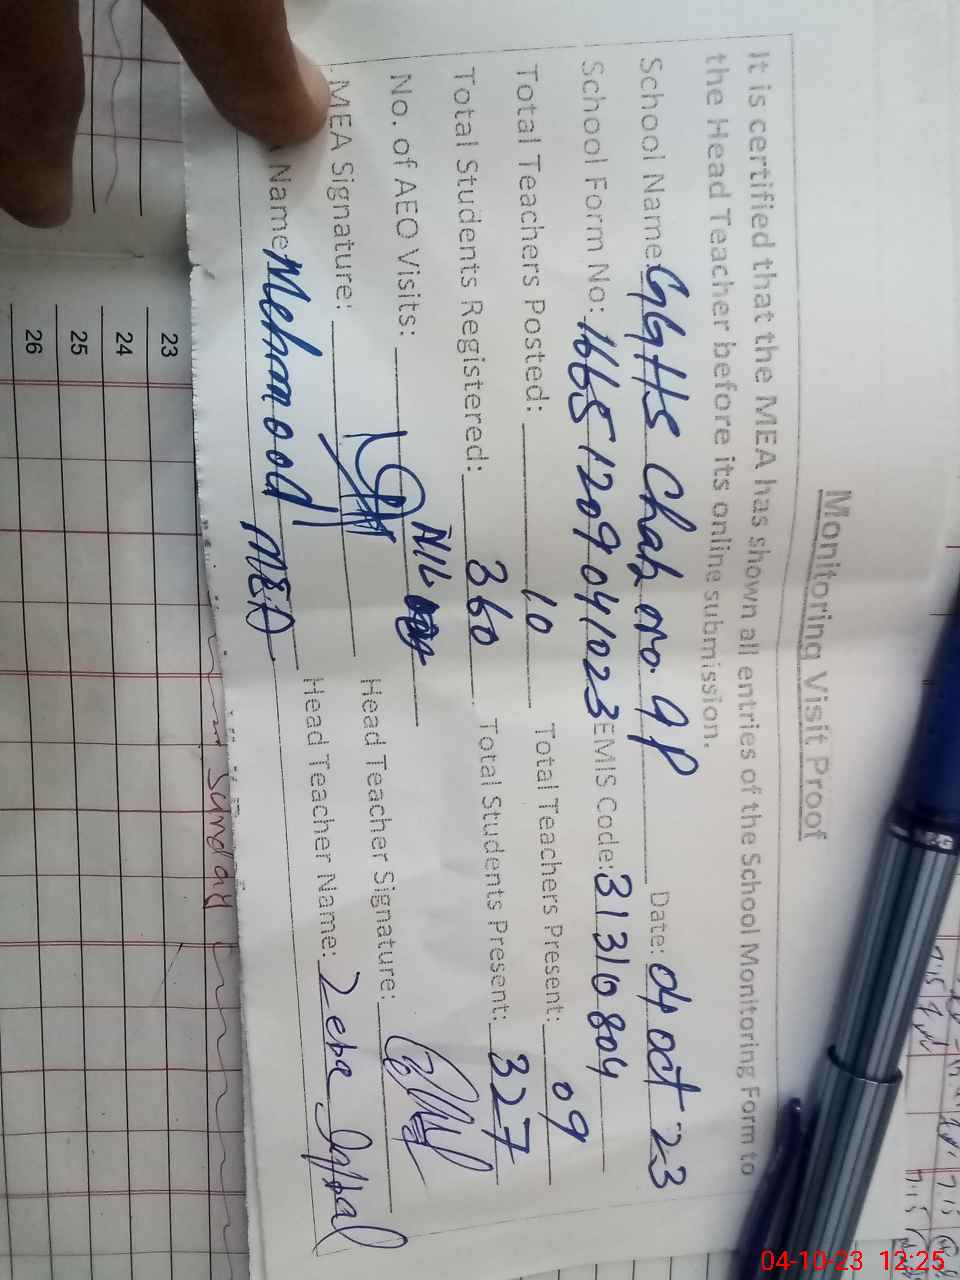 Monitoring Visit Proof
It is certified that the MEA has shown all entries of the School Monitoring Form to
the Head Teacher before its online submission.
School Name: GGHS Chak no 9P Date: 04 oct 23
School Form No: 16651209041023 EMIS Code: 31310804
Total Teachers Posted: 10 Total Teachers Present: 09
Total Students Registered: 360 Total Students Present: 327
No. of AEO Visits: NIL
MEA Signature: Head Teacher Signature:
Name: Mehmood MEA Head Teacher Name: Zeba Iqbal
Sunday
23
24
25
26
04-10-23 12:25